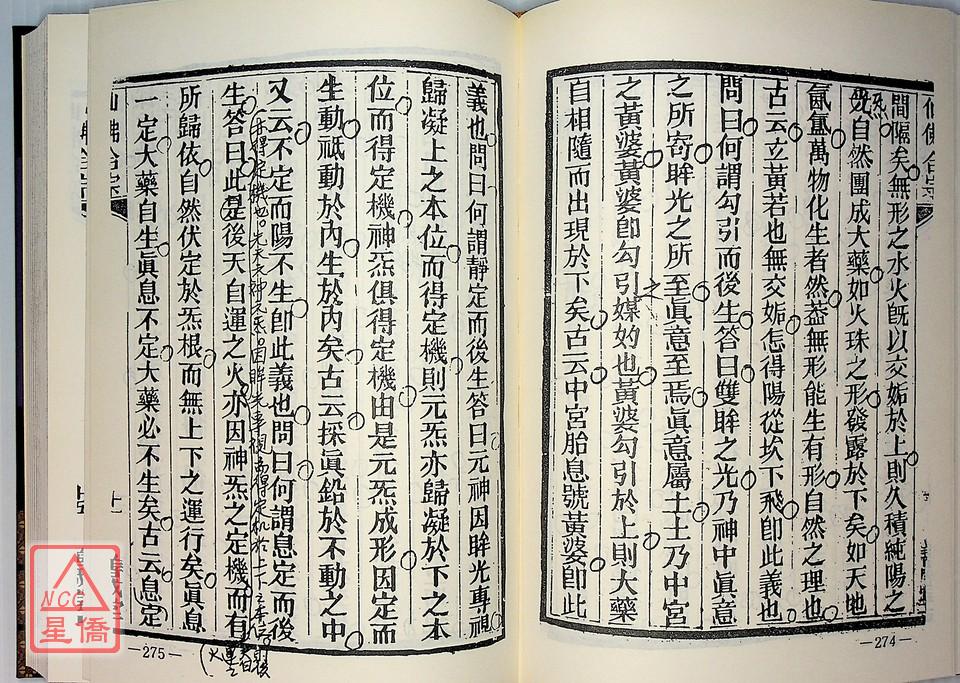 仙佛合宗
間隔矣無形之水火旣以交姤於上則久積純陽之
炁自然團成大藥如火珠之形發露於下矣如天地
氤氳萬物化生者然葢無形能生有形自然之理也
古云玄黃若也無交姤怎得陽從坎下飛卽此義也
問曰何謂勾引而後生答曰雙眸之光乃神中眞意
之所寄眸光之所至眞意至焉眞意屬土土乃中宮
之黃婆黃婆卽勾引之媒妁也黃婆勾引於上則大藥
自相隨而出現於下矣古云中宮胎息號黃婆卽此
—274—
義也問曰何謂靜定而後生答曰元神因眸光專視
歸凝上之本位而得定機則元炁亦歸凝於下之本
位而得定機神炁俱得定機由是元炁成形因定而
生動祗動於內生於內矣古云採眞鉛於不動之中
又云不定而陽不生卽此義也問曰何謂息定而後
生答曰此是後天自運之火亦因神炁之定機而有
所歸依自然伏定於炁根而無上下之運行矣眞息
一定大藥自生眞息不定大藥必不生矣古云息定
仙佛合宗
—275—
NCC
星僑